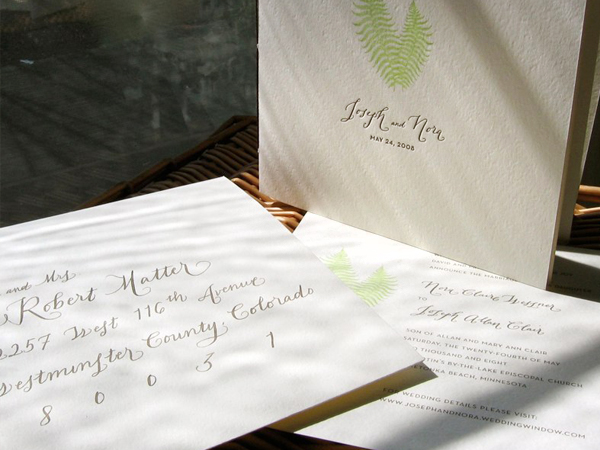 Joseph and Nora
MAY 24, 2008
and Mrs
Robert Matter
2257 West 116th Avenue
Westminster County Colorado
80031
DAVID AND
ANNOUNCE THE MARRIAGE
Nora Claire
TO
Joseph Allan Clair
SON OF ALLAN AND MARY ANN CLAIR
SATURDAY, THE TWENTY-FOURTH OF MAY
THOUSAND AND EIGHT
BY-THE-LAKE EPISCOPAL CHURCH
BEACH, MINNESOTA
FOR WEDDING DETAILS PLEASE VISIT:
WWW.JOSEPHANDNORA.WEDDINGWINDOW.COM